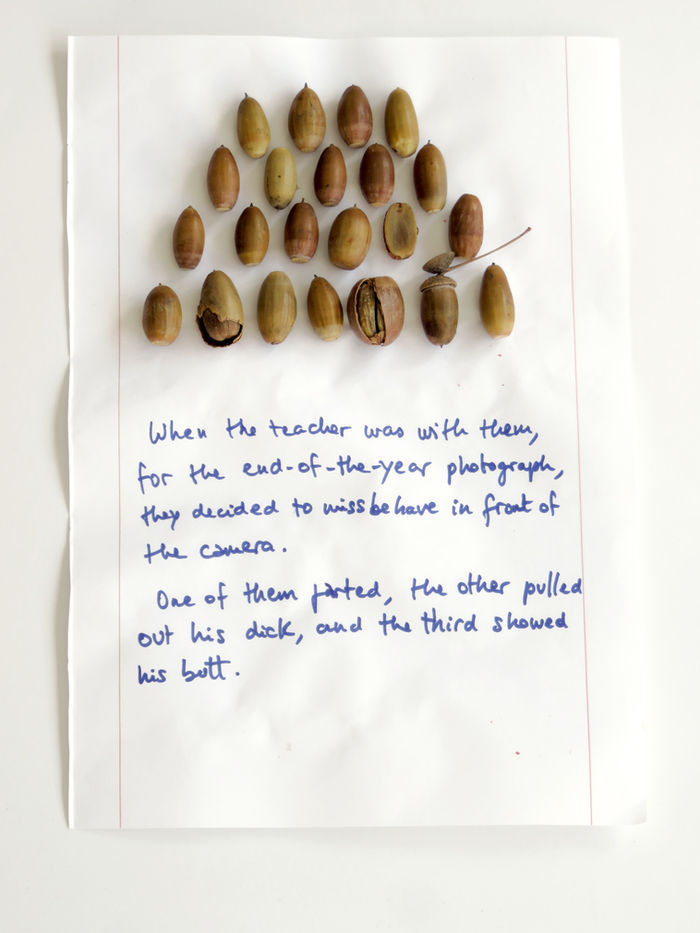 When the teacher was with them,
for the end-of-the-year photograph,
they decided to missbehave in front of
the camera.
One of them farted, the other pulled
out his dick, and the third showed
his butt.